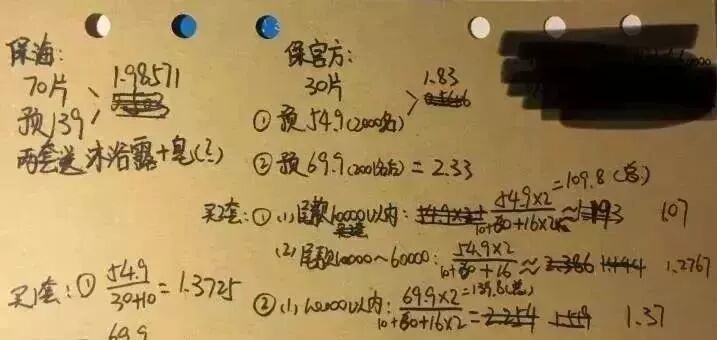 保海:
70片
1.98571
预139
两套送沐浴露+皂(?)
保官方:
30片
1.83
① 预54.9(2000名)
② 预69.9(2001名后) = 2.33
买2套: ① (1) 尾款10000以内: 54.9×2=109.8(总) / 10+80+16×2 ≈ 1.07
(2) 尾款10000~60000: 54.9×2 / 10+80+16 ≈ 1.2767
买1套: ① 54.9 / 30+10 = 1.3725
② (1) 10000以内: 69.9×2=139.8(总) / 10+80+16×2 = 1.37
69.9